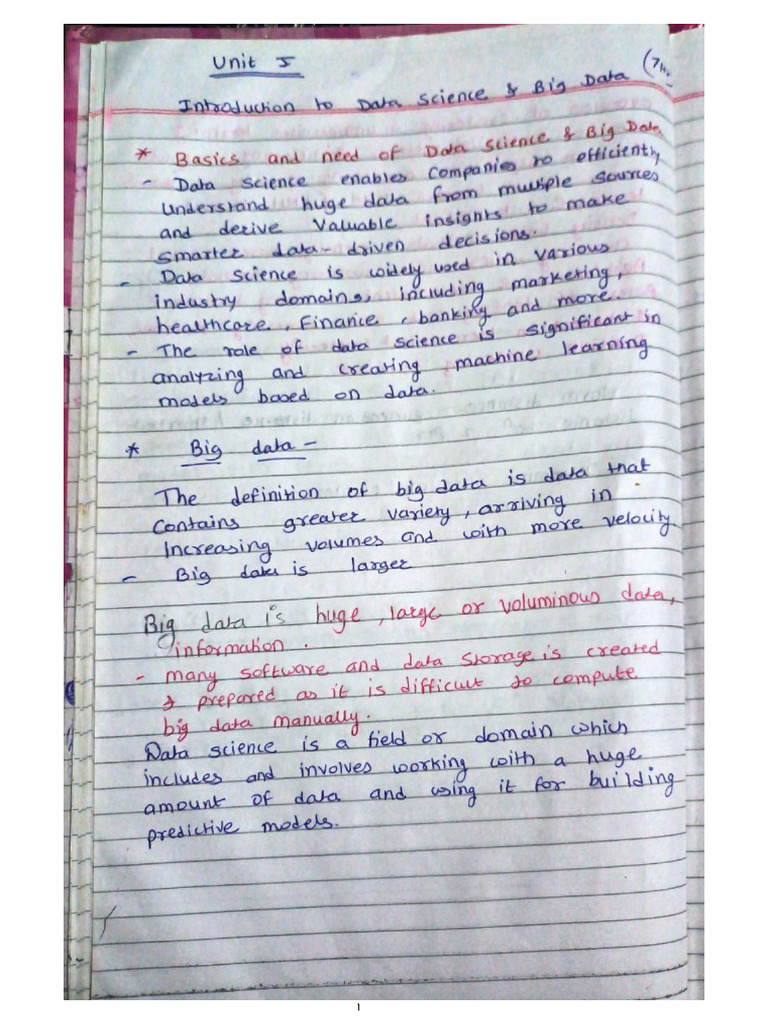 Unit I
Introduction to Data Science & Big Data (7hr
* Basics and need of Data Science & Big Data
- Data Science enables companies to efficiently
understand huge data from multiple sources
and derive valuable insights to make
smarter data-driven decisions.
- Data Science is widely used in various
industry domains, including marketing,
healthcare, Finance, banking and more.
- The role of data science is significant in
analyzing and creating machine learning
models based on data.
* Big data -
The definition of big data is data that
contains greater variety, arriving in
Increasing volumes and with more velocity
- Big data is larger
Big data is huge, large or voluminous data,
information.
- many software and data storage is created
& prepared as it is difficult to compute
big data manually.
Data science is a field or domain which
includes and involves working with a huge
amount of data and using it for building
predictive models.
1